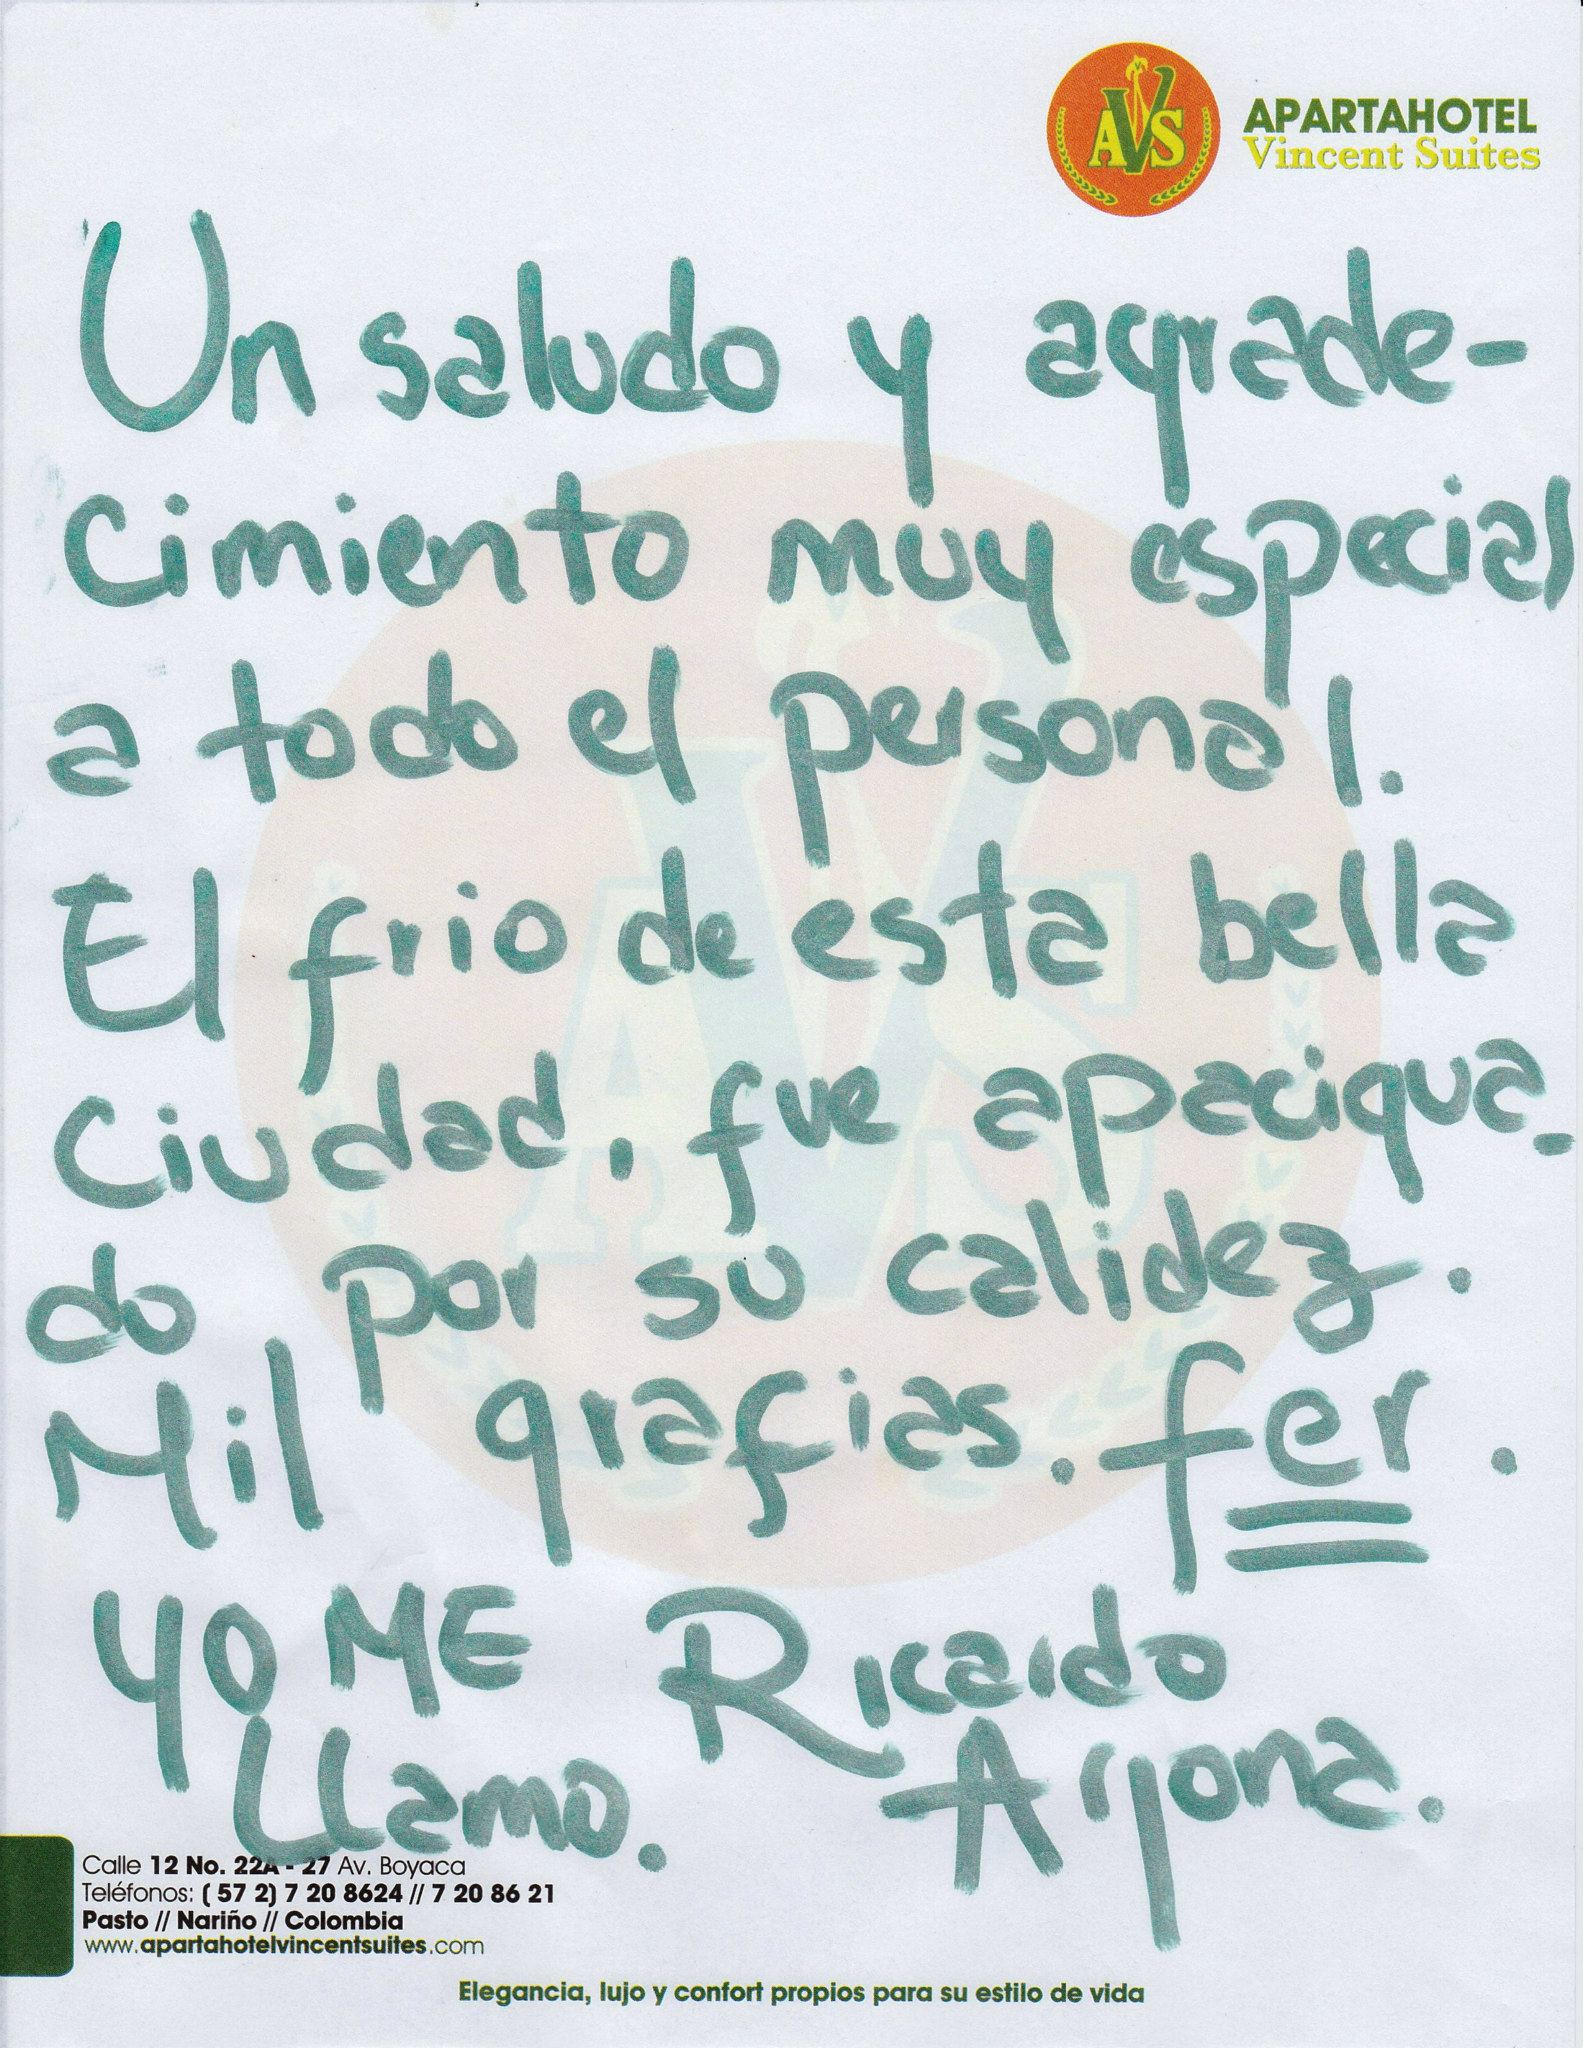 AVS
APARTAHOTEL
Vincent Suites
Un saludo y agrade-
cimiento muy especial
a todo el personal.
El frio de esta bella
Ciudad, fue apacigua-
do por su calidez.
Mil graçias. fer.
YO ME Ricardo
Llamo. Arjona.
Calle 12 No. 22A - 27 Av. Boyaca
Teléfonos: ( 57 2) 7 20 8624 // 7 20 86 21
Pasto // Nariño // Colombia
www.apartahotelvincentsuites.com
Elegancia, lujo y confort propios para su estilo de vida